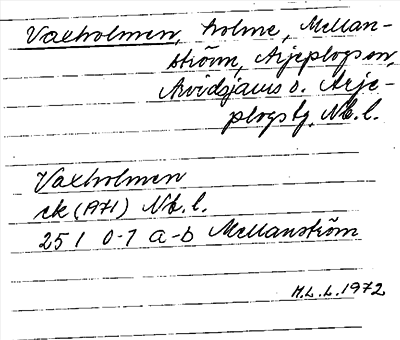 Vaxholmen, holme, Mellan-
ström, Arjeplogs sn,
Arvidsjaurs o. Arje-
plogs tg, Nb. l.
Vaxholmen
ek (1971) Nb. l.
25 I 0-1 a-b Mellanström
M.L.L. 1972